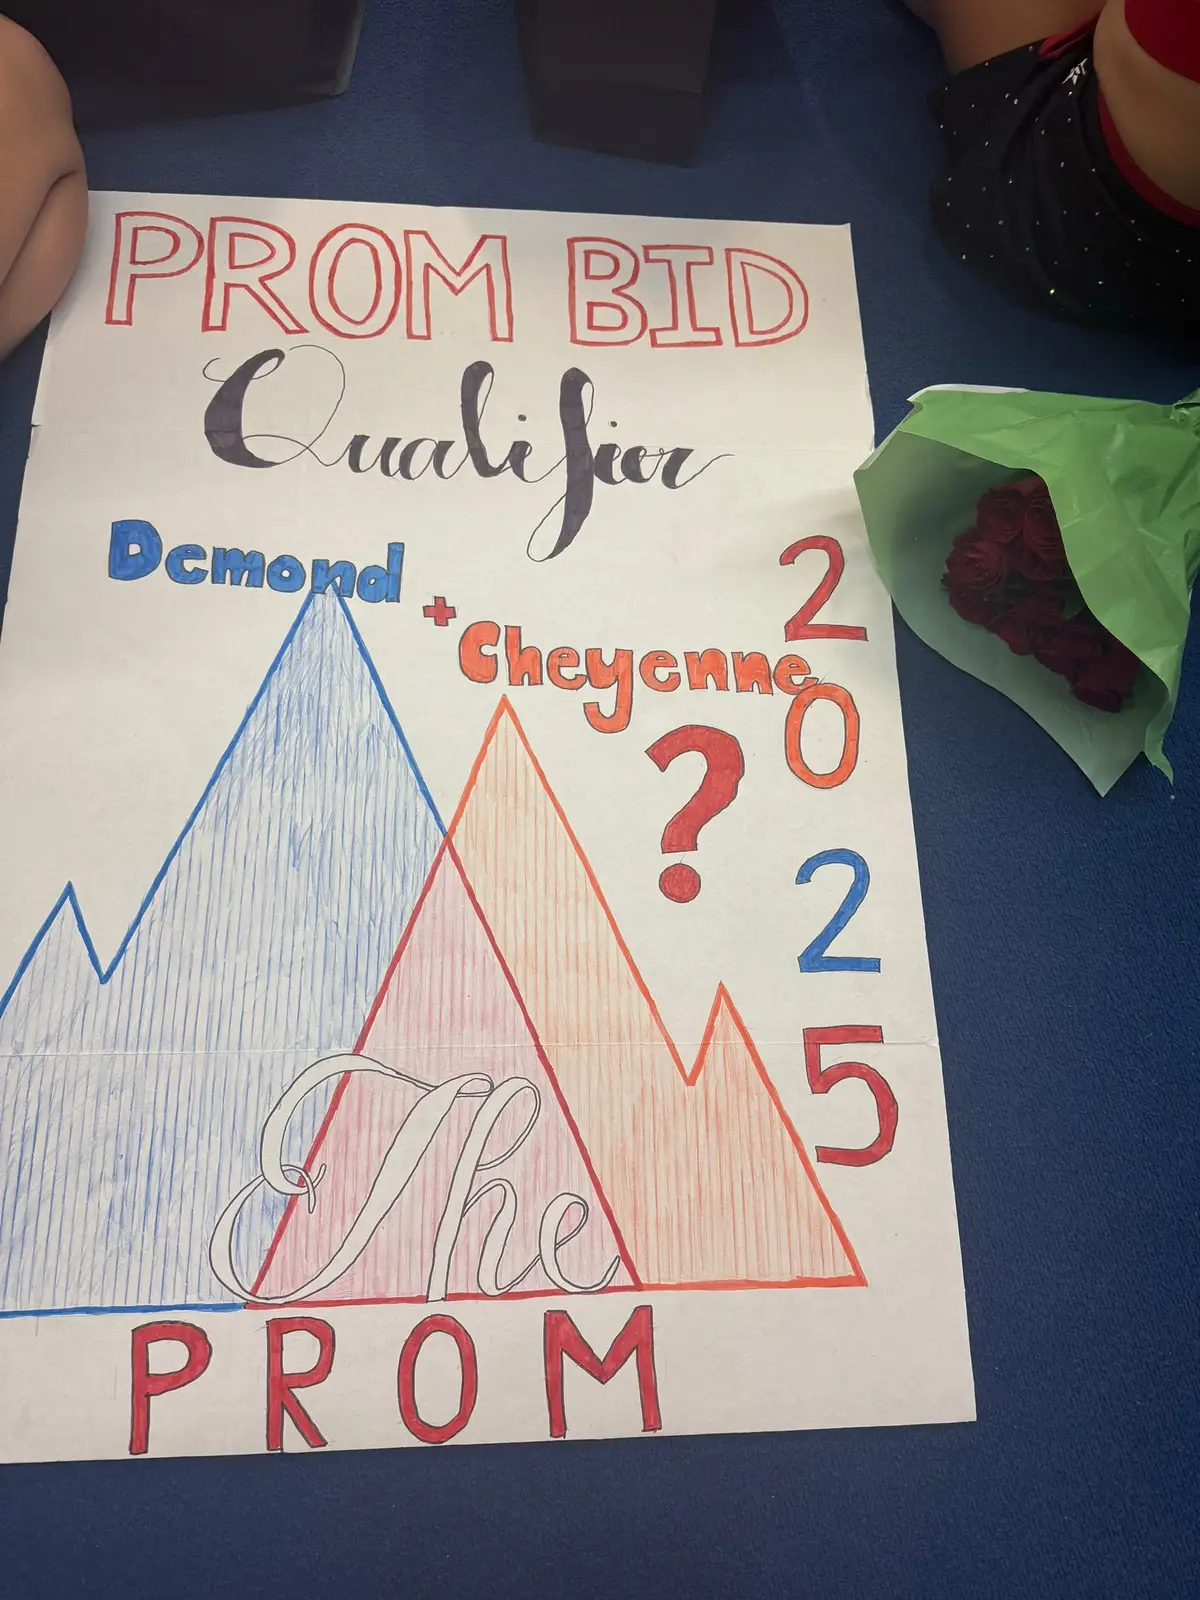 PROM BID
Qualifier
Demond
+
Cheyenne
?
2
0
2
5
The
PROM